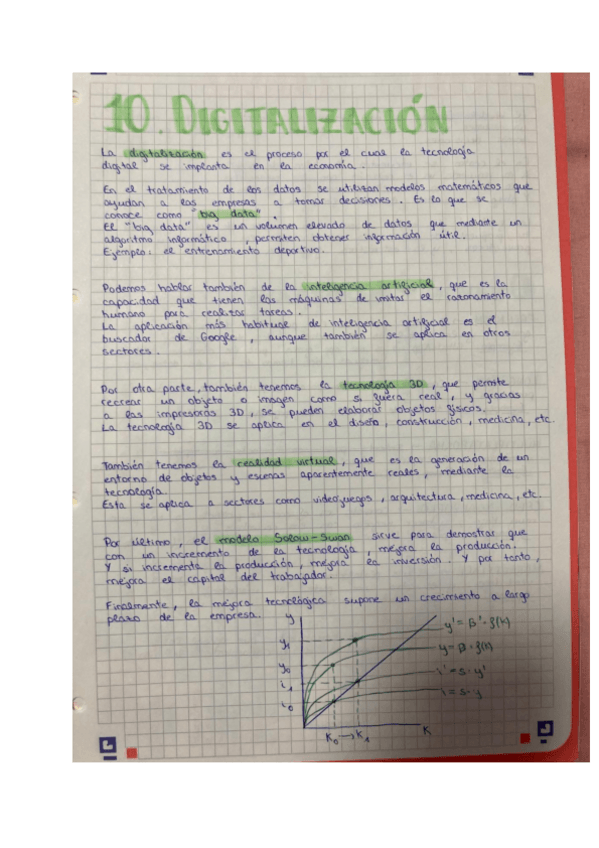 10. DIGITALIZACIÓN
La digitalización es el proceso por el cual la tecnología
digital se implanta en la economía.
En el tratamiento de los datos se utilizan modelos matemáticos que
ayudan a las empresas a tomar decisiones. Es lo que se
conoce como "big data".
El "big data" es un volumen elevado de datos que mediante un
algoritmo informático, permiten obtener información útil.
Ejemplo: el entrenamiento deportivo.
Podemos hablar también de la inteligencia artificial, que es la
capacidad que tienen las máquinas de imitar el razonamiento
humano para realizar tareas.
La aplicación más habitual de inteligencia artificial es el
buscador de Google, aunque también se aplica en otros
sectores.
Por otra parte, también tenemos la tecnología 3D, que permite
recrear un objeto o imagen como si fuera real, y gracias
a las impresoras 3D, se pueden elaborar objetos físicos.
La tecnología 3D se aplica en el diseño, construcción, medicina, etc.
También tenemos la realidad virtual, que es la generación de un
entorno de objetos y escenas aparentemente reales, mediante la
tecnología.
Esta se aplica a sectores como videojuegos, arquitectura, medicina, etc.
Por último, el modelo Solow-Swan sirve para demostrar que
con un incremento de la tecnología, mejora la producción.
Y si incrementa la producción, mejora la inversión. Y por tanto,
mejora el capital del trabajador.
Finalmente, la mejora tecnológica supone un crecimiento a largo
plazo de la empresa.
y
y₁
y₀
i₁
i₀
y' = B' · f(K)
y = B · f(K)
i' = s · y'
i = s · y
K₀ → K₁
K